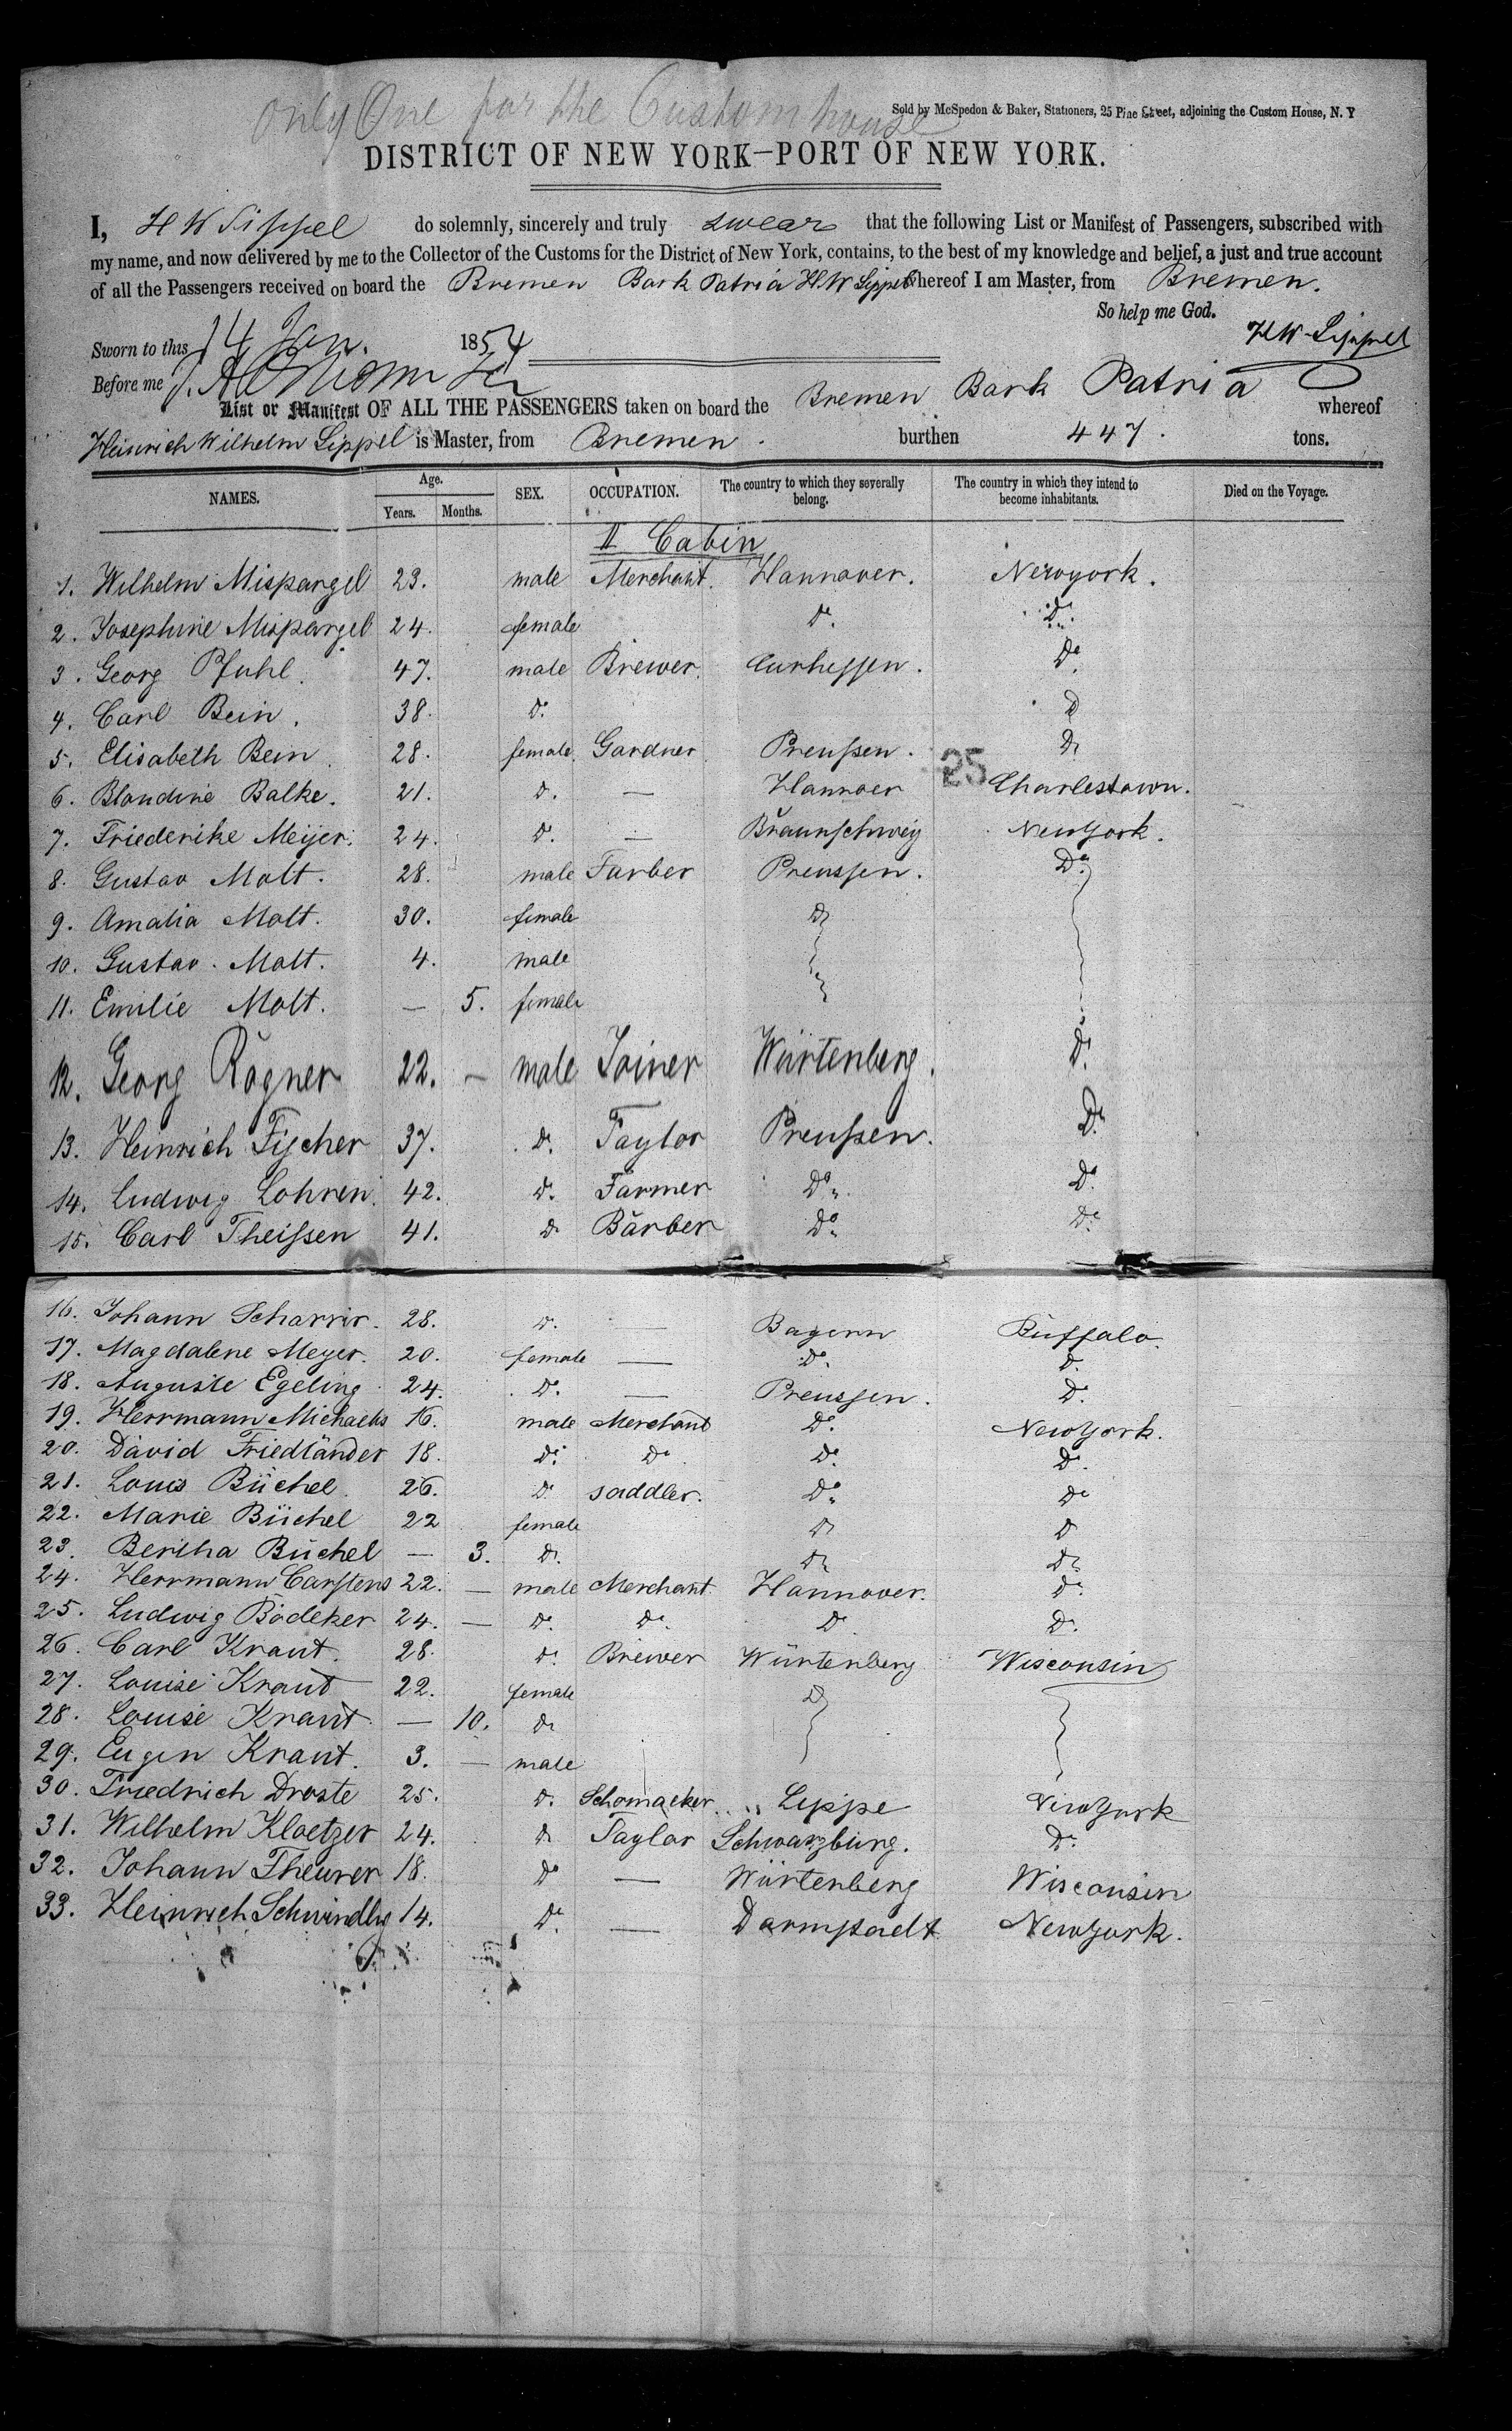 only One for the Custom house
Sold by McSpedon & Baker, Stationers, 25 Pine Street, adjoining the Custom House, N. Y
DISTRICT OF NEW YORK—PORT OF NEW YORK.
I, H W Sippel do solemnly, sincerely and truly swear that the following List or Manifest of Passengers, subscribed with
my name, and now delivered by me to the Collector of the Customs for the District of New York, contains, to the best of my knowledge and belief, a just and true account
of all the Passengers received on board the Bremen Bark Patria H.W Sippel whereof I am Master, from Bremen.
So help me God.
H W Sippel
Sworn to this 14 Jan. 1854
Before me
List or Manifest OF ALL THE PASSENGERS taken on board the Bremen Bark Patria whereof
Heinrich Wilhelm Sippel is Master, from Bremen. burthen 447. tons.
NAMES. Age. Years. Months. SEX. OCCUPATION. The country to which they severally belong. The country in which they intend to become inhabitants. Died on the Voyage.
II Cabin
1. Wilhelm Mispargel 23. male Merchant. Hannover. Newyork.
2. Josephine Mispargel 24. female do. do.
3. Georg Pfuhl. 47. male Brewer. Curhessen. Do.
4. Carl Bein. 38. do. D
5. Elisabeth Bein. 28. female. Gardner Preußen. Do
25
6. Blondine Balke. 21. d. — Hannoer Charlestown.
7. Friederike Meijer. 24. d. — Braunschweig NewYork.
8. Gustav Molt. 28. male Farber Preussen. Do.
9. Amalia Molt. 30. female Do
10. Gustav. Molt. 4. male
11. Emilie Molt. — 5. female
12. Georg Rögner 22. — male Joiner Würtenberg. Do.
13. Heinrich Fischer 37. d. Taylor Preußen. Do.
14. Ludwig Lohren. 42. d. Farmer Do. Do.
15. Carl Theißen 41. d Bärber Do. Do.
16. Johann Scharrir. 28. d. — Bayern Buffalo.
17. Magdalene Meyer. 20. female — Do. D.
18. Auguste Egeling 24. Do. — Preussen. Do.
19. Herrmann Michaelis 16. male Merchant Do. NewYork.
20. David Friedländer 18. Do. Do Do. Do.
21. Louis Büchel. 26. D. saddler. Do. Do
22. Marie Büchel 22 female Do D
23. Bertha Büchel — 3. D. Do Do
24. Herrmann Carstens 22. — male Merchant. Hannover. Do.
25. Ludwig Bödeker 24. — Do. Do. D Do.
26. Carl Kraut. 28. Do. Brewer Würtenberg Wisconsin
27. Louise Kraut 22. female D
28. Louise Kraut. — 10. do
29. Eugen Kraut. 3. — male
30. Friedrich Droste 25. d. Schomacker Lippe NewYork
31. Wilhelm Kloetzer 24. d Taylor Schwarzburg. Do.
32. Johann Theurer 18. Do — Würtenberg Wisconsin
33. Heinrich 14. Do. — Darmstadt NewYork.